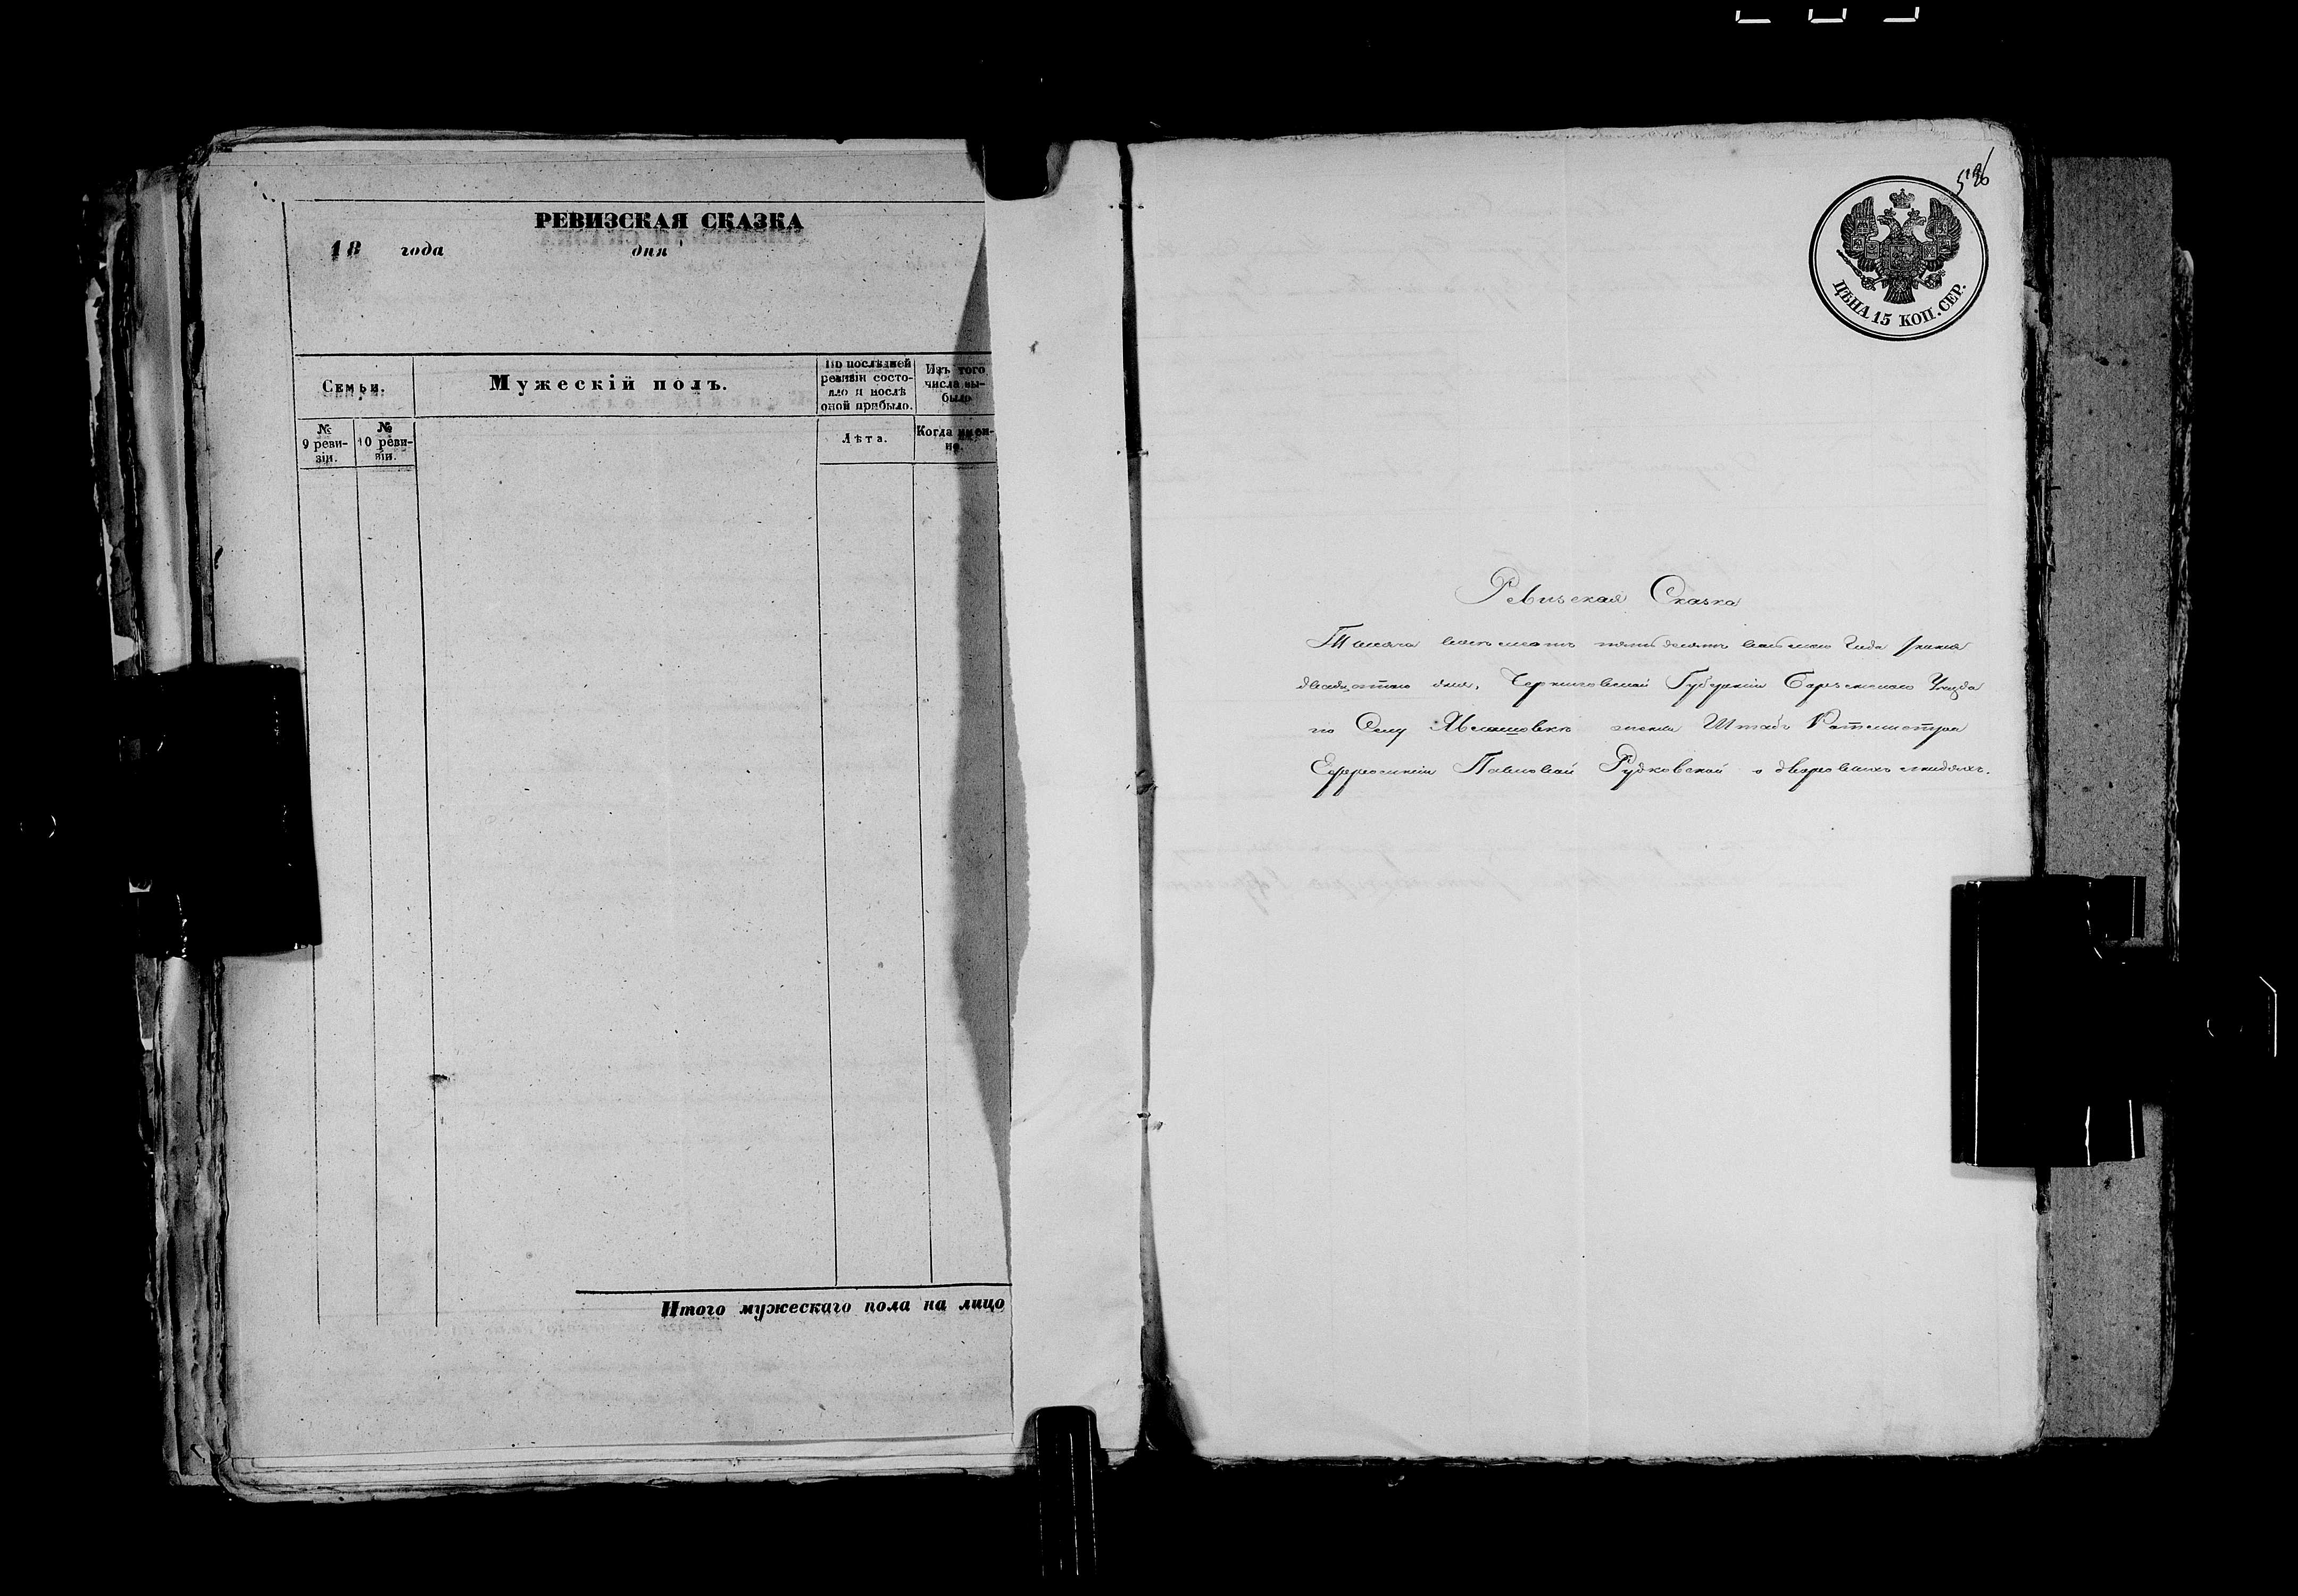 РЕВИЗСКАЯ СКАЗКА
18 года дня
Семьи.
Мужескій полъ.
По послѣдней ревизіи состо-
яло и послѣ
оной прибыло.
Изъ того
числа вы-
было
№
9 реви-
зіи.
№
10 реви-
зіи.
Лѣта.
Когда имен-
но.
Итого мужескаго пола на лицо
526
ЦѢНА 15 КОП. СЕР.
Ревизская Сказка
Тысяча восемсотъ пятьдесятъ восьмого Года Іюня
двадцатого дня, Черниговской Губерніи Борзенского Уезда
по Селу жены Штабъ Ротмистра
Ефросиніи Павловой Рудковской о дворовыхъ людяхъ.